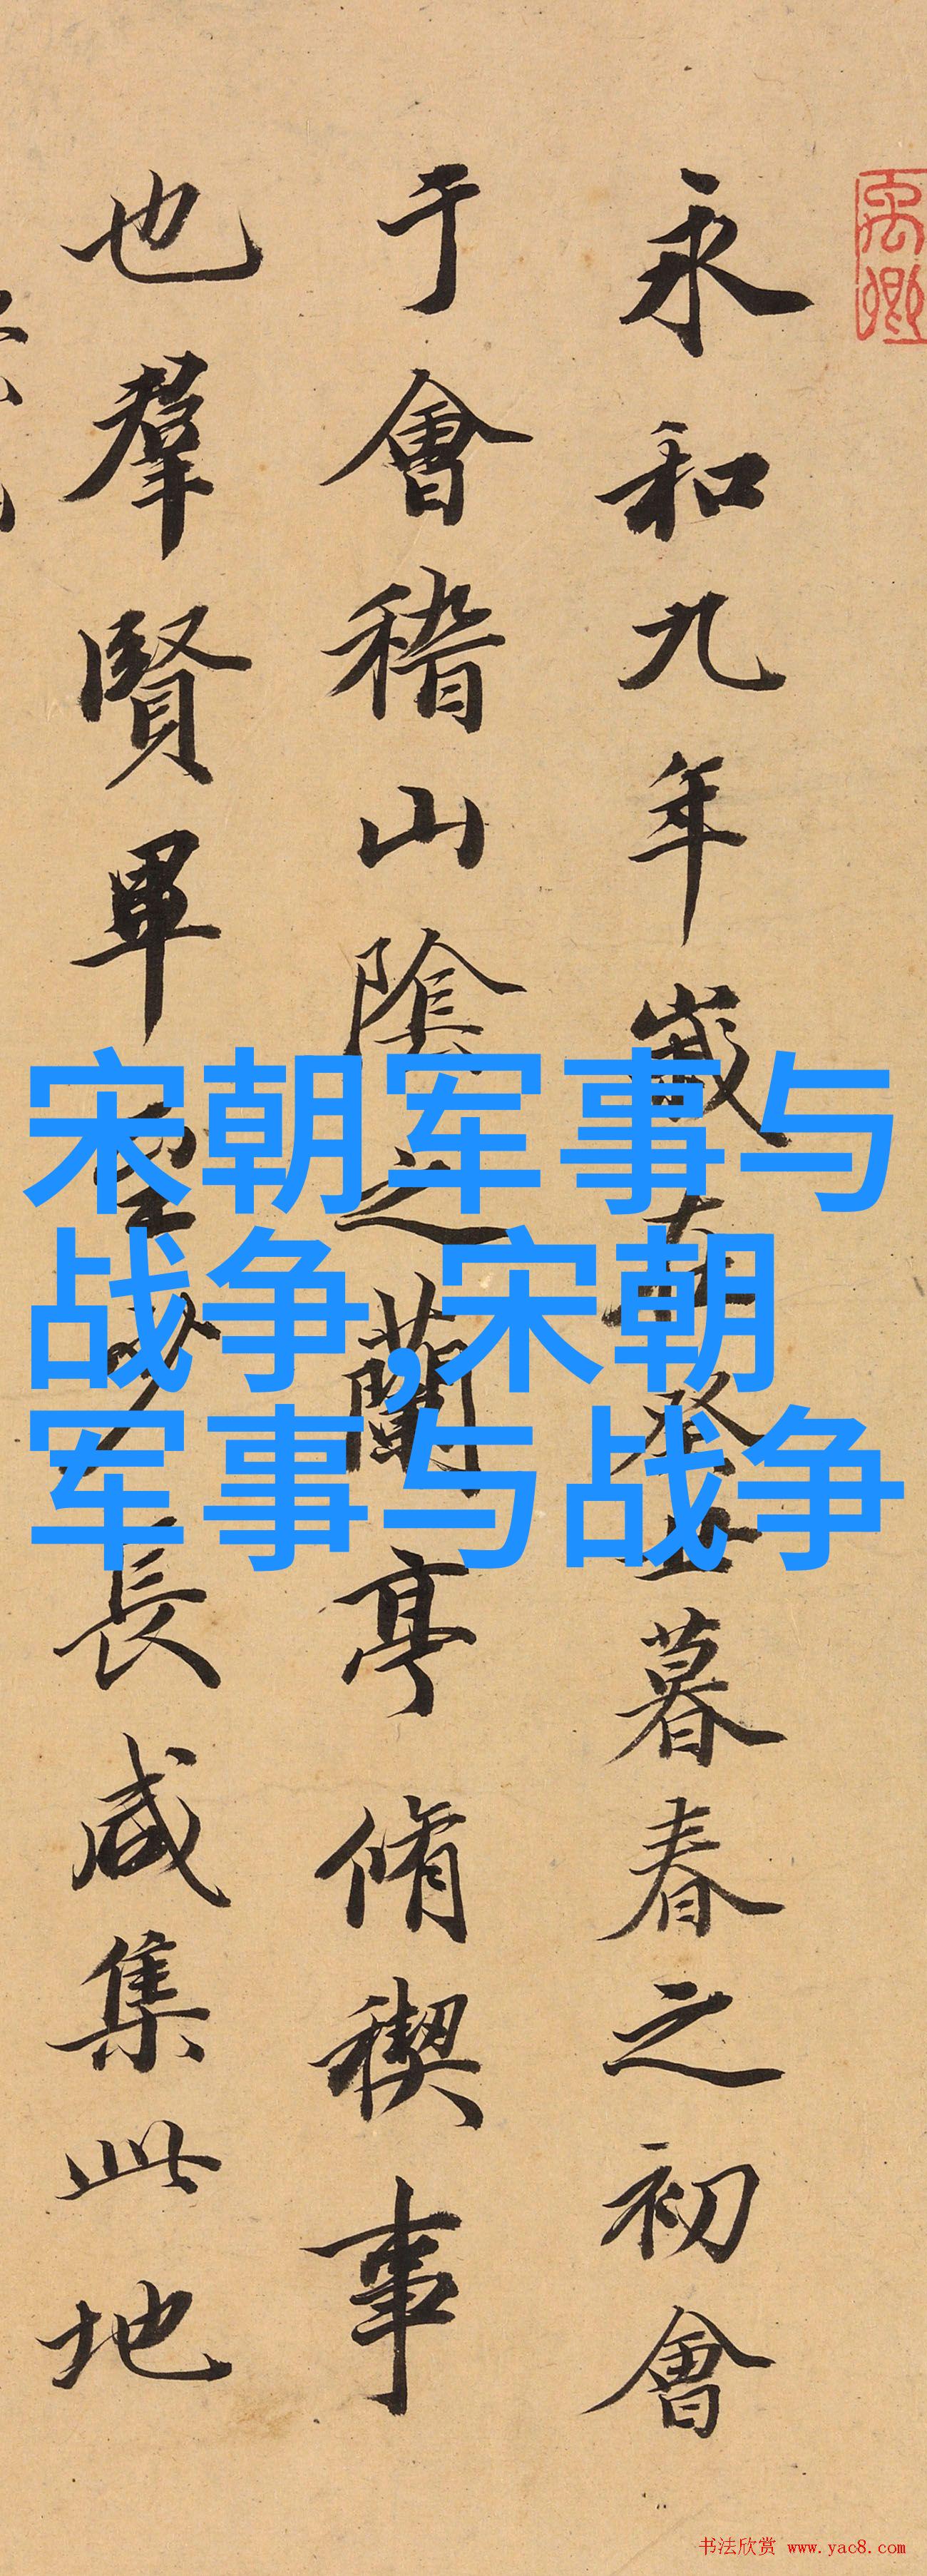 永和九年歲在癸丑暮春之初會
于會稽山陰之蘭亭脩稧事
也羣賢畢至少長咸集此地
宋朝军事与
战争,宋朝
军事与战争
书法欣赏 www.yac8.com